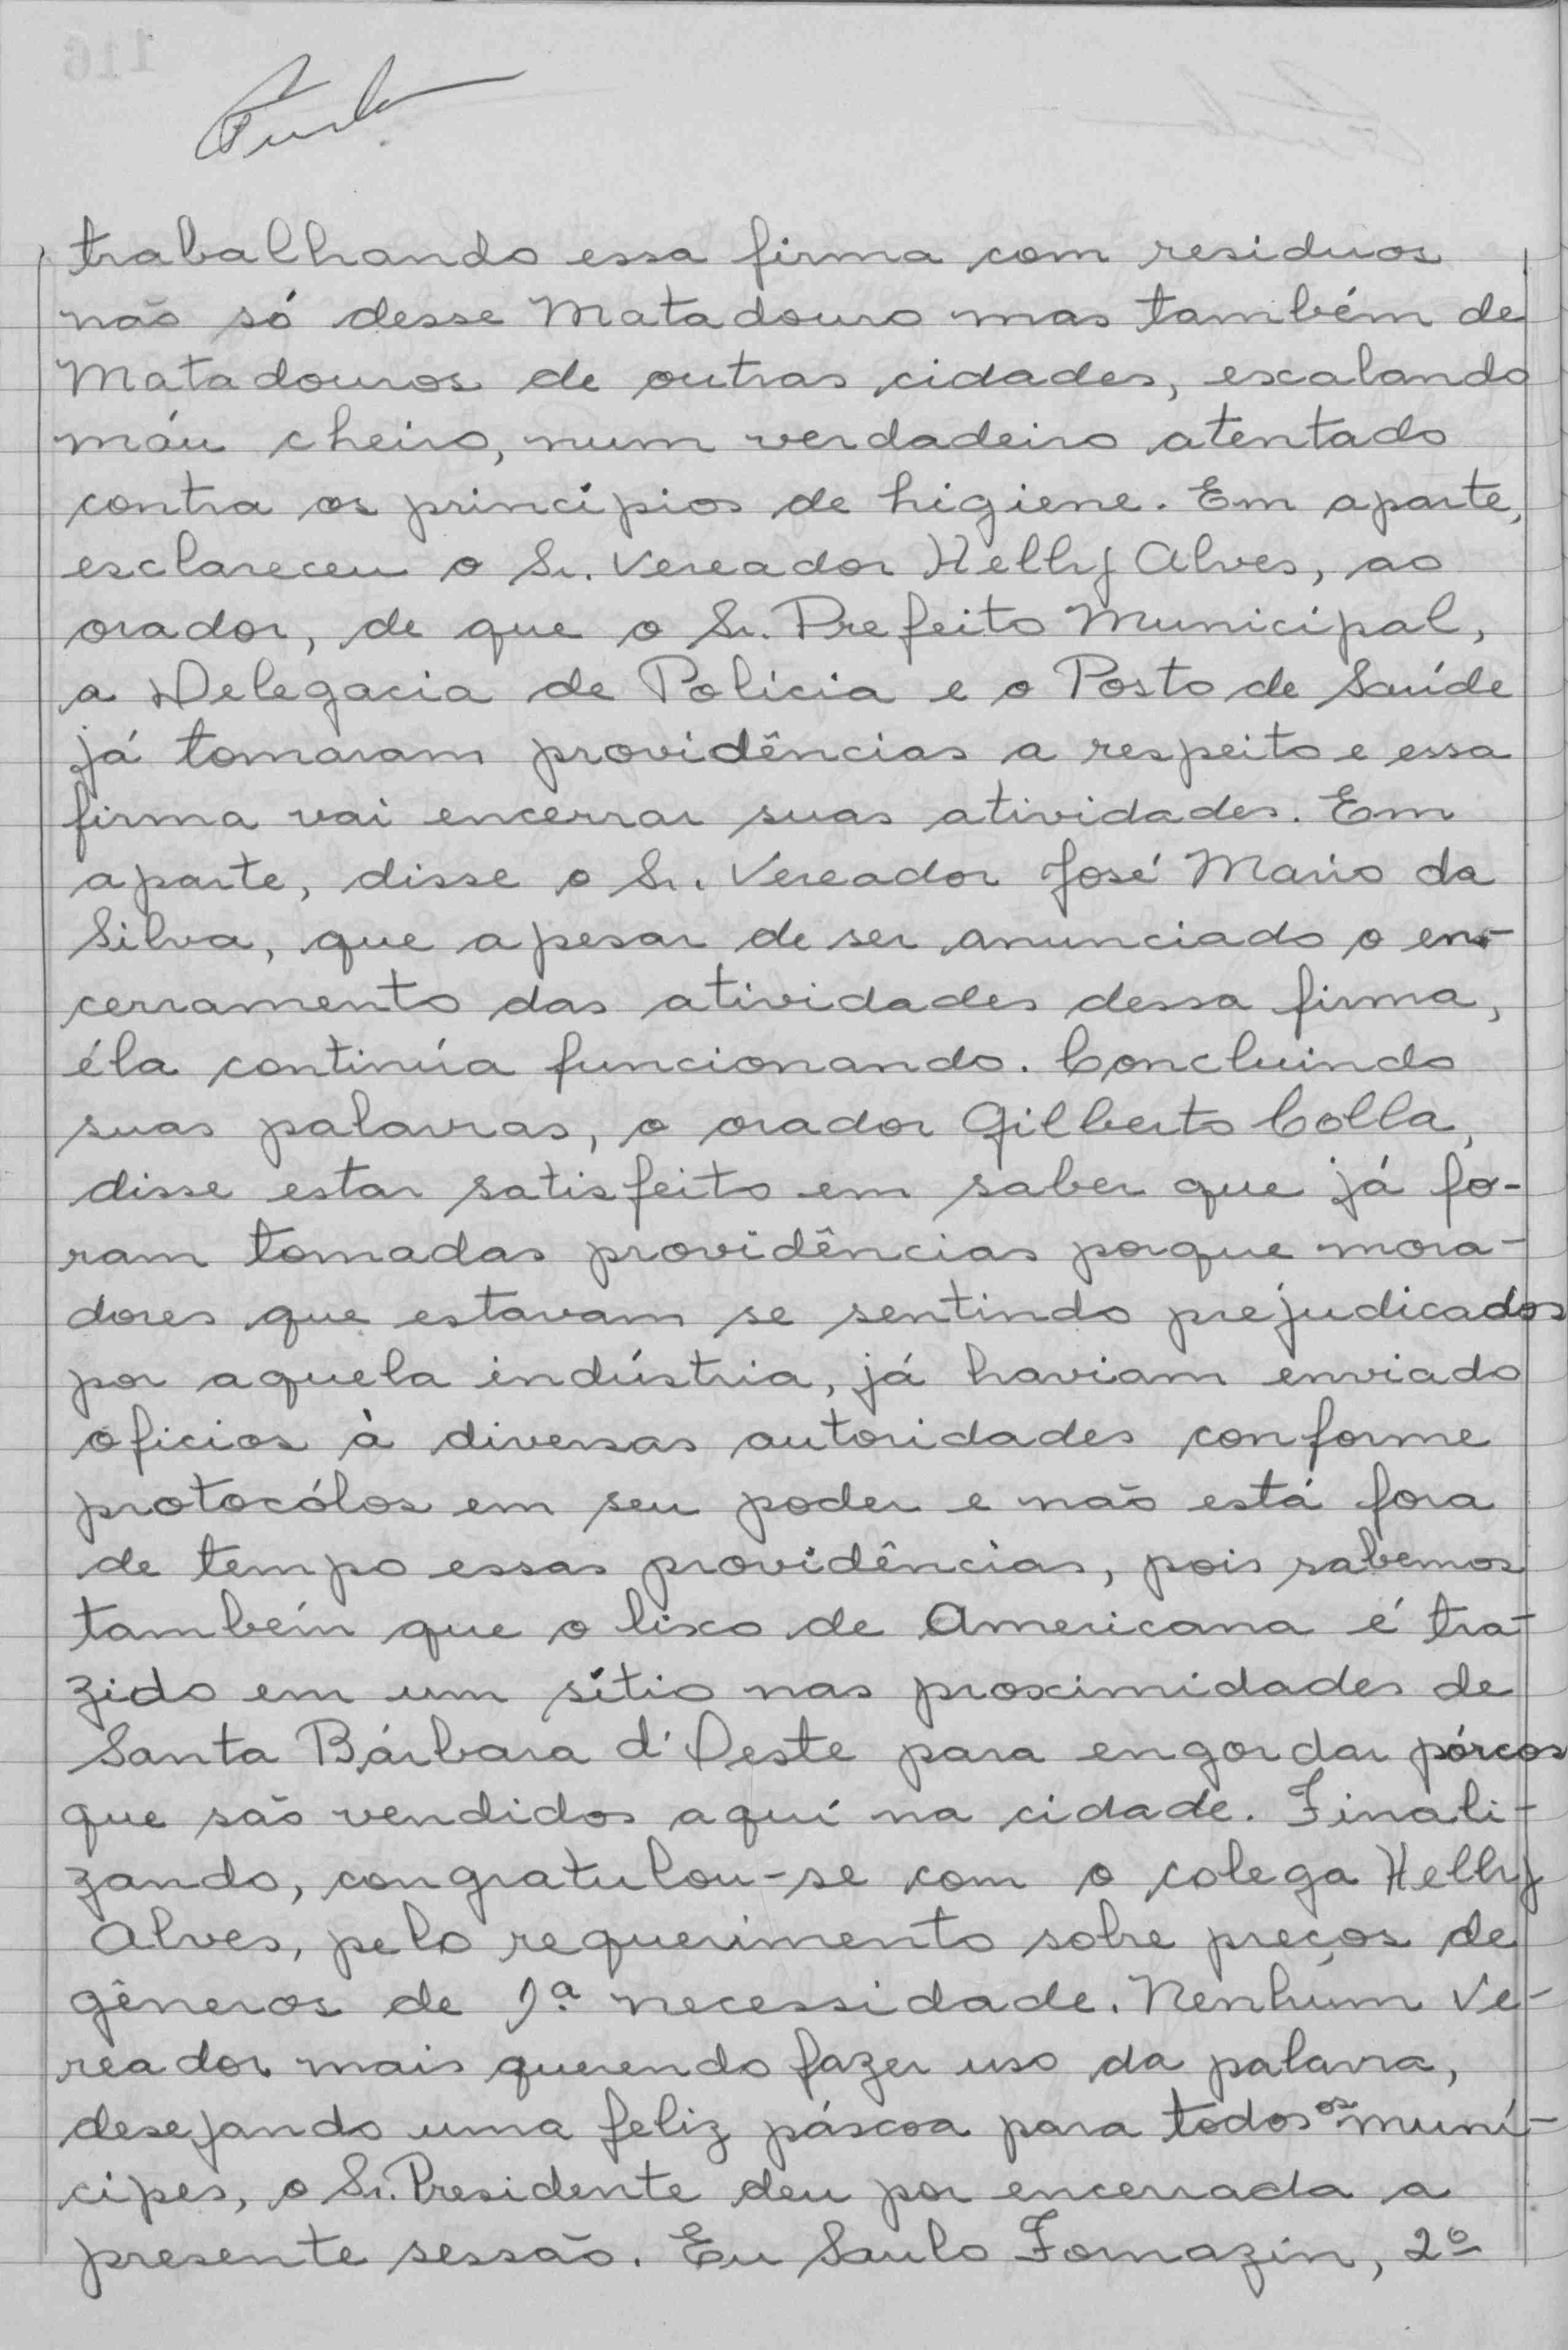 trabalhando essa firma com residuos
não só desse Matadouro mas também de
Matadouros de outras cidades, escalando
máu cheiro, num verdadeiro atentado
contra os princípios de higiene. Em aparte,
esclareceu o Sr. Vereador Helly Alves, ao
orador, de que o Sr. Prefeito Municipal,
a Delegacia de Polícia e o Posto de Saúde
já tomaram providências a respeito e essa
firma vai encerrar suas atividades. Em
aparte, disse o Sr. Vereador José Mario da
Silva, que apesar de ser anunciado o en-
cerramento das atividades dessa firma,
éla continúa funcionando. Concluindo
suas palavras, o orador Gilberto Colla,
disse estar satisfeito em saber que já fo-
ram tomadas providências porque mora-
dores que estavam se sentindo prejudicados
por aquela indústria, já haviam enviado
oficios à diversas autoridades conforme
protocólos em seu poder e não está fora
de tempo essas providências, pois sabemos
também que o lixo de Americana é tra-
zido em um sítio nas proximidades de
Santa Bárbara d'Oeste para engordar pórcos
que são vendidos aquí na cidade. Finali-
zando, congratulou-se com o colega Helly
Alves, pelo requerimento sobre preços de
gêneros de 1ª necessidade. Nenhum Ve-
reador mais querendo fazer uso da palavra,
desejando uma feliz páscoa para todos os muní-
cipes, o Sr. Presidente deu por encerrada a
presente sessão. Eu Saulo Fornazin, 2º